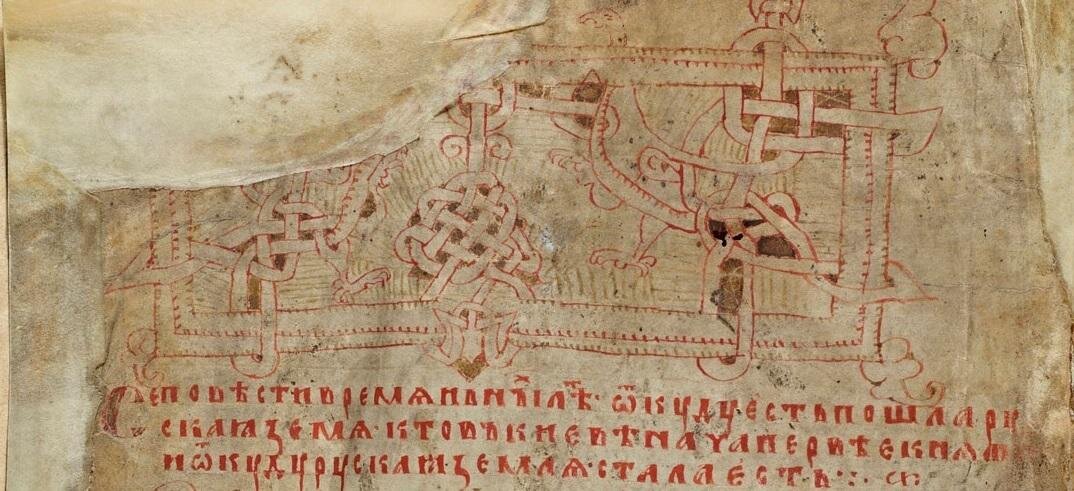 Се повѣсти времѧньнꙑⷯ лѣⷮ · ѿкуду есть пошла ру
скаꙗ земѧ · кто въ киевѣ нача первѣе
и ѿкуду рускаꙗ землѧ стала есть ⁘